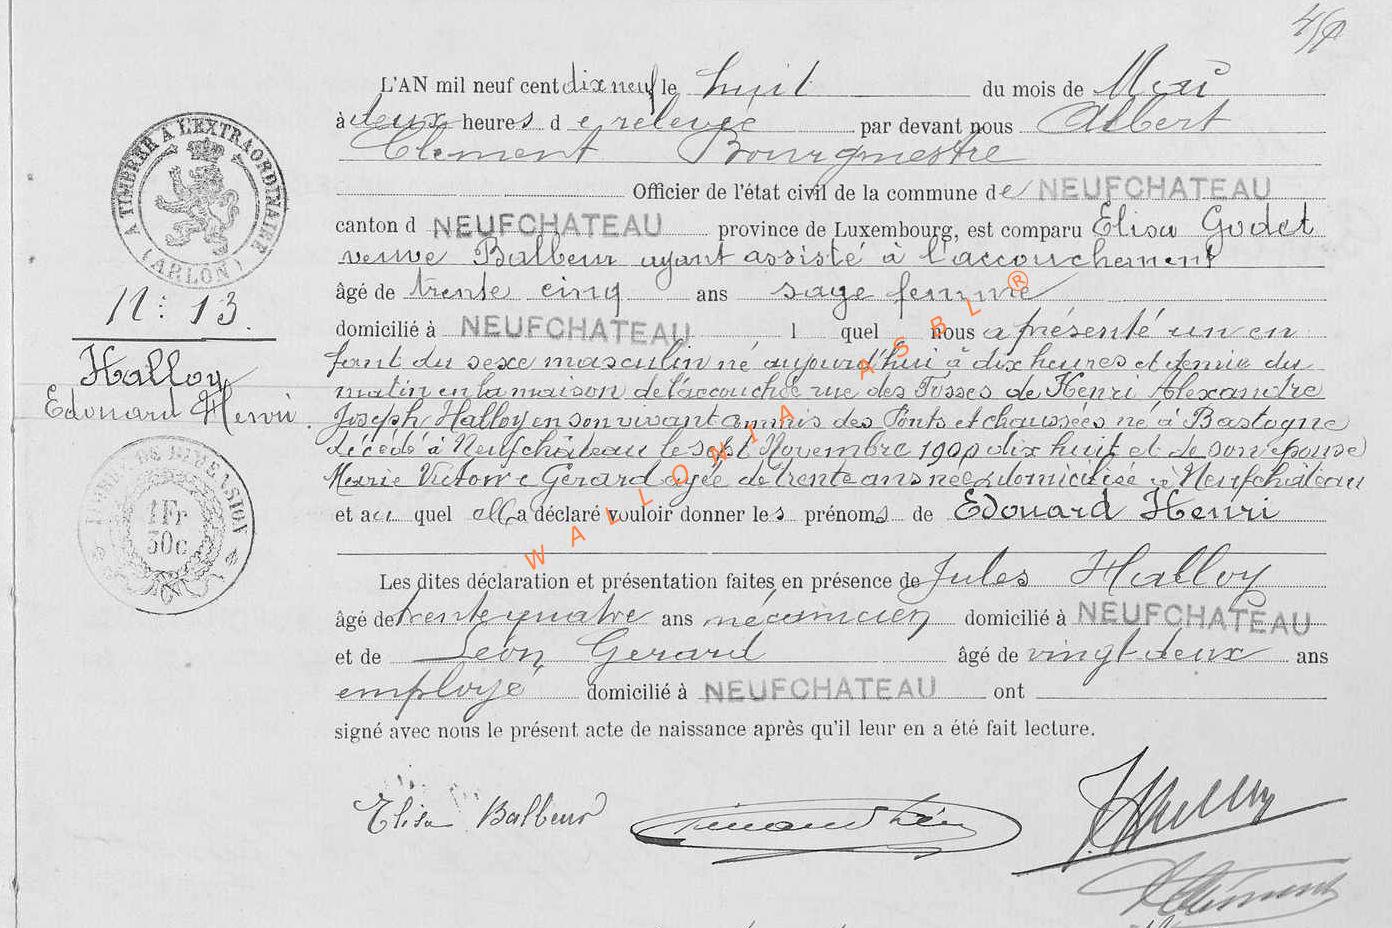 L'AN mil neuf cent dix neuf le huit du mois de Mai
à deux heures de relevée par devant nous Albert
Clément Bourgmestre
Officier de l'état civil de la commune de NEUFCHATEAU
canton d NEUFCHATEAU province de Luxembourg, est comparu Elisa Godet
veuve Balbeur ayant assisté à l'accouchement
âgé de trente cinq ans sage femme
domicilié à NEUFCHATEAU l quel nous a présenté un en
fant du sexe masculin né aujourd'hui à dix heures et demie du
matin en la maison de l'accouchée rue des Fosses de Henri Alexandre
Joseph Halloy en son vivant commis des Ponts et chaussées né à Bastogne
décédé à Neufchâteau le sept Novembre 1900 dix huit et de son épouse
Marie Victorine Gérard agée de trente ans née & domiciliée à Neufchâteau
et au quel elle a déclaré vouloir donner les prénoms de Edouard Henri
Les dites déclaration et présentation faites en présence de Jules Halloy
âgé de trente quatre ans mécanicien domicilié à NEUFCHATEAU
et de Léon Gerard âgé de vingt-deux ans
employé domicilié à NEUFCHATEAU ont
signé avec nous le présent acte de naissance après qu'il leur en a été fait lecture.
Elisa Balbeur
J. Halloy
A Clément
A TIMBRER A L'EXTRAORDINAIRE
(ARLON)
N: 13
Halloy
Edouard Henri.
TIMBRE DE DIMENSION
1 Fr
30c
WALLONIA ASBL ®